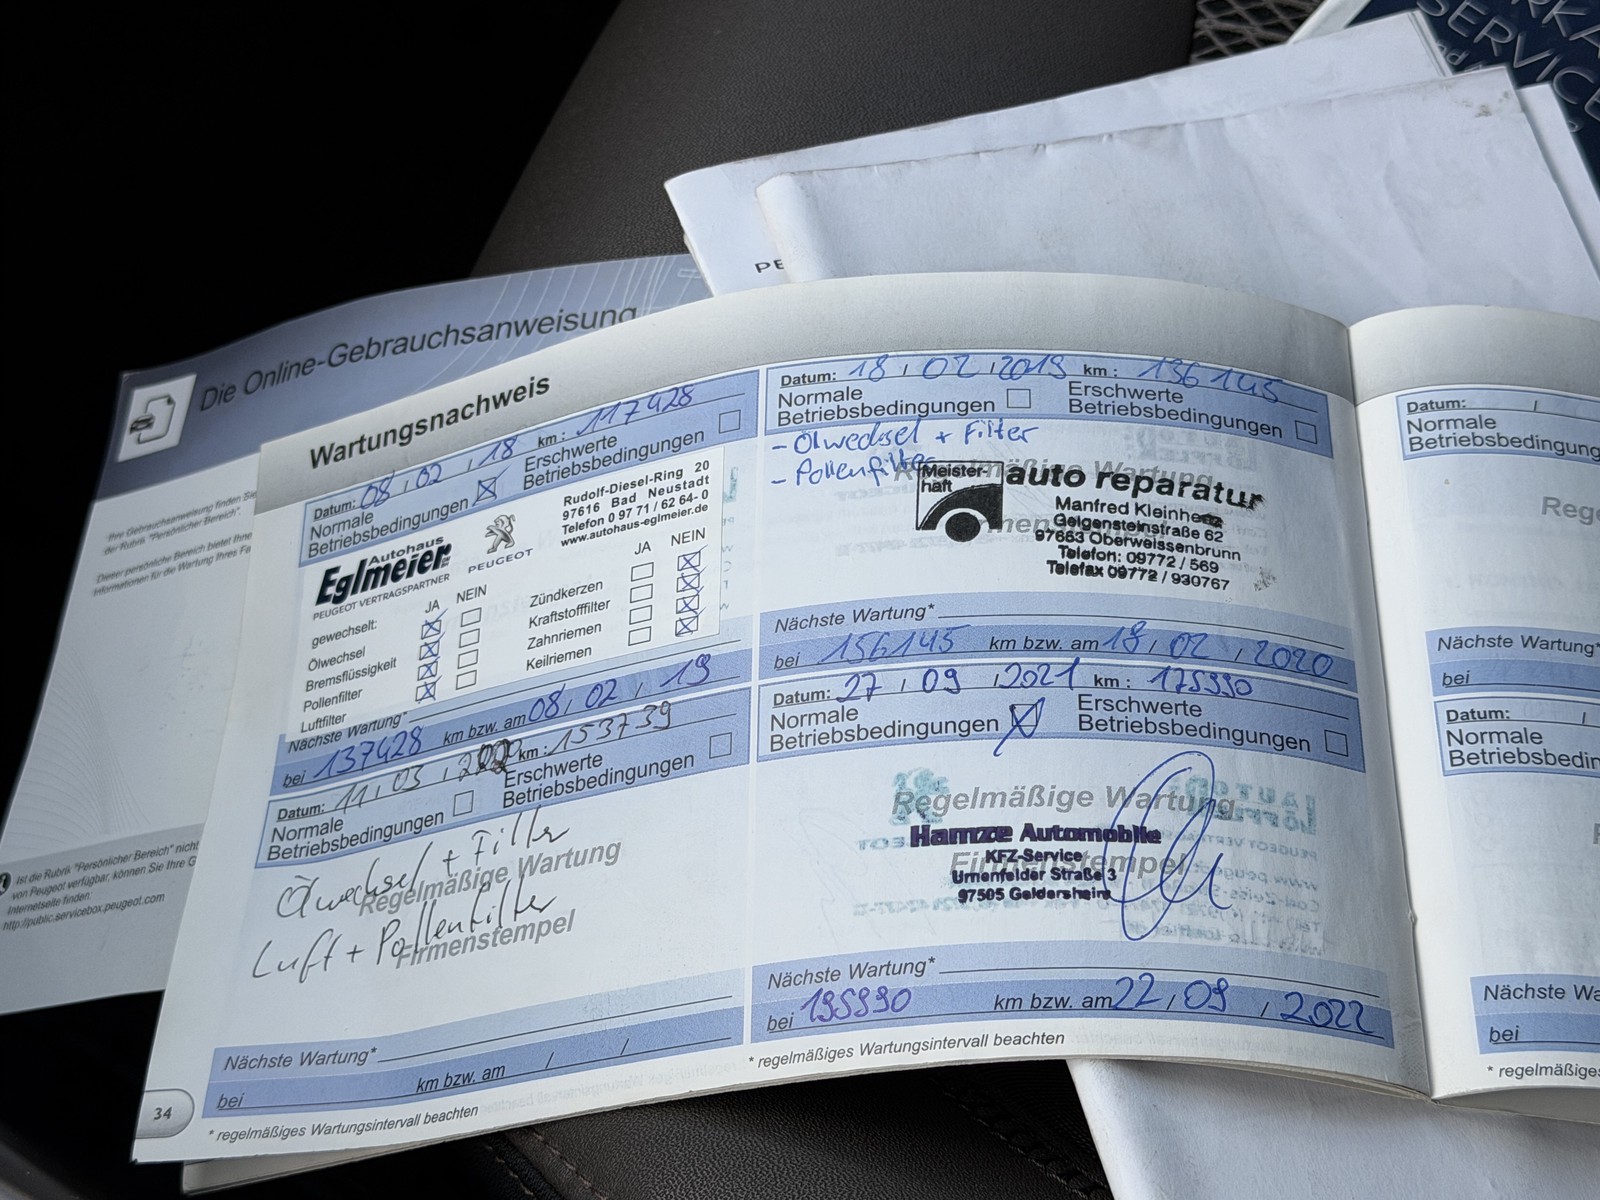 RKA
SERVICE
PE
Die Online-Gebrauchsanweisung
Ihre Gebrauchsanweisung finden Sie
der Rubrik "Persönlicher Bereich".
Dieser persönliche Bereich bietet Ihne
Informationen für die Wartung Ihres Fa
Ist die Rubrik "Persönlicher Bereich" nicht
von Peugeot verfügbar, können Sie Ihre G
Internetseite finden:
http://public.servicebox.peugeot.com
Wartungsnachweis
Datum: 08 / 02 / 18 km: 117428
Normale Betriebsbedingungen
Erschwerte Betriebsbedingungen
Autohaus
Eglmeier
PEUGEOT VERTRAGSPARTNER
PEUGEOT
Rudolf-Diesel-Ring 20
97616 Bad Neustadt
Telefon 0 97 71 / 62 64-0
www.autohaus-eglmeier.de
gewechselt: JA NEIN
Ölwechsel
Bremsflüssigkeit
Pollenfilter
Luftfilter
JA NEIN
Zündkerzen
Kraftstofffilter
Zahnriemen
Keilriemen
Nächste Wartung*
bei 137428 km bzw. am 08 / 02 / 19
Datum: 11 / 03 / 2020 km: 153739
Normale Betriebsbedingungen
Erschwerte Betriebsbedingungen
Ölwechsel + Filter
Regelmäßige Wartung
Luft + Pollenfilter
Firmenstempel
Nächste Wartung*
bei km bzw. am / /
34
* regelmäßiges Wartungsintervall beachten
Datum: 18 / 02 / 2019 km: 136145
Normale Betriebsbedingungen
Erschwerte Betriebsbedingungen
- Ölwechsel + Filter
- Pollenfilter
Regelmäßige Wartung
Meister-
haft
auto reparatur
Manfred Kleinhenz
Geigensteinstraße 62
97653 Oberweissenbrunn
Telefon: 09772 / 569
Telefax 09772 / 930767
Nächste Wartung*
bei 156145 km bzw. am 18 / 02 / 2020
Datum: 27 / 09 / 2021 km: 175990
Normale Betriebsbedingungen
Erschwerte Betriebsbedingungen
Regelmäßige Wartung
Hamze Automobile
Firmenstempel
KFZ-Service
Urnenfelder Straße 3
97505 Geldersheim
Nächste Wartung*
bei 195990 km bzw. am 22 / 09 / 2022
* regelmäßiges Wartungsintervall beachten
Datum: /
Normale
Betriebsbedingung
Rege
Nächste Wartung*
bei
Datum: /
Normale
Betriebsbedin
F
Nächste Wa
bei
* regelmäßiges